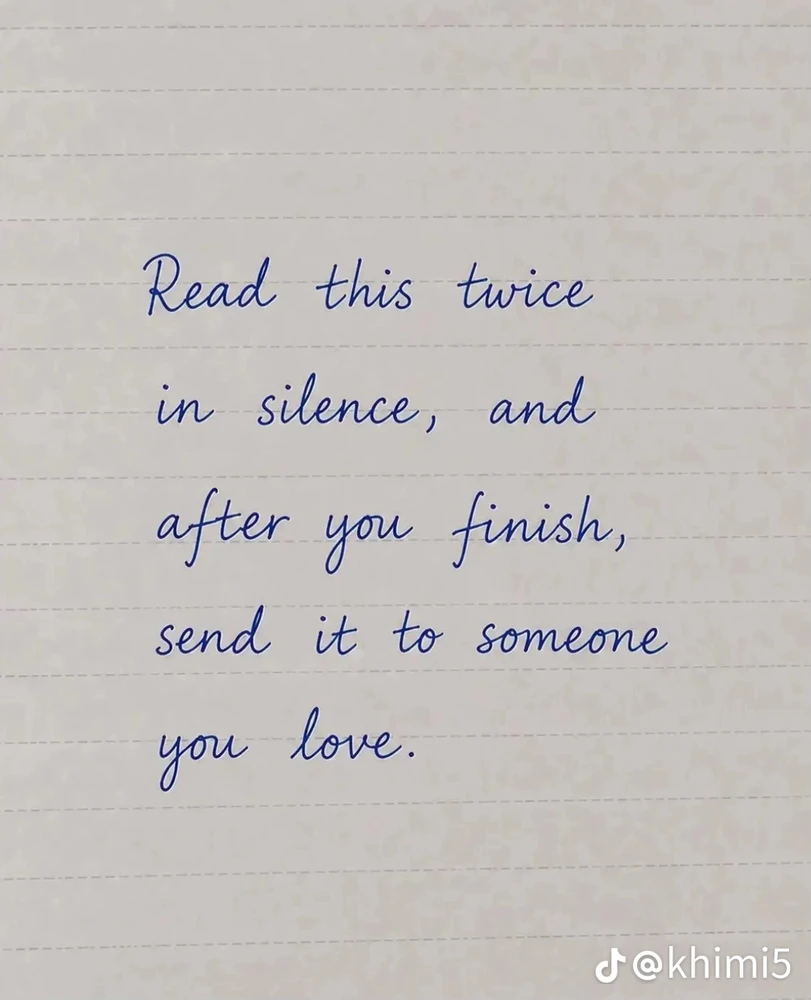 Read this twice
in silence, and
after you finish,
send it to someone
you love.
@khimi5